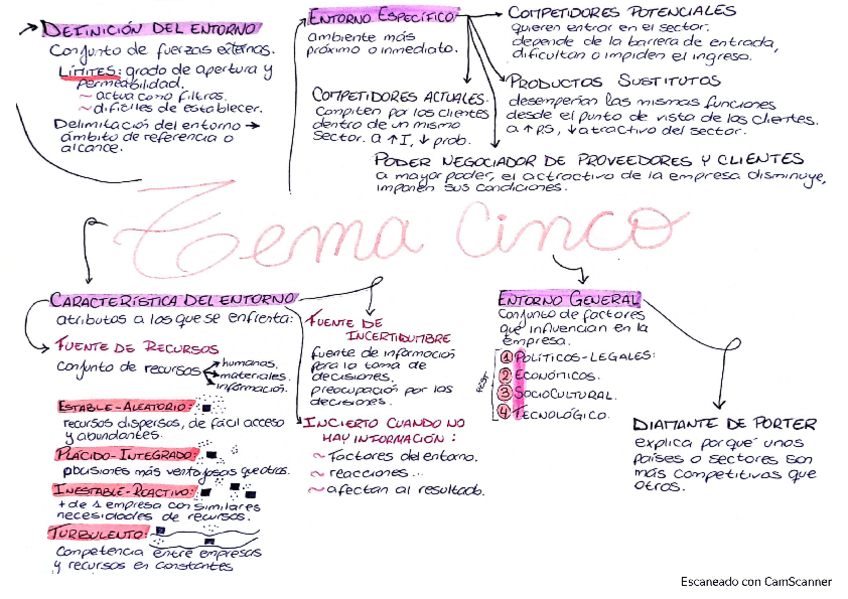 DEFINICIÓN DEL ENTORNO
Conjunto de fuerzas externas.
LÍMITES: grado de apertura y
permeabilidad.
~ actua como filtros.
~ difíciles de establecer.
Delimitación del entorno →
ámbito de referencia o
alcance.
ENTORNO ESPECÍFICO
ambiente más
próximo o inmediato.
COMPETIDORES ACTUALES.
Compiten por los clientes
dentro de un mismo
sector. a ↑ I, ↓ prob.
COMPETIDORES POTENCIALES
quieren entrar en el sector.
depende de la barrera de entrada,
dificultan o impiden el ingreso.
PRODUCTOS SUSTITUTOS
desempeñan las mismas funciones
desde el punto de vista de los clientes.
a ↑ PS, ↓ atractivo del sector.
PODER NEGOCIADOR DE PROVEEDORES Y CLIENTES
a mayor poder, el actractivo de la empresa disminuye,
imponen sus condiciones.
Tema Cinco
CARACTERÍSTICA DEL ENTORNO
atributos a los que se enfrenta:
FUENTE DE RECURSOS
conjunto de recursos
humanos.
materiales.
información.
ESTABLE-ALEATORIO:
recursos dispersos, de fácil acceso
y abundantes.
PLÁCIDO-INTEGRADO:
posiciones más ventajosas que otras.
INESTABLE-REACTIVO:
+ de 1 empresa con similares
necesidades de recursos.
TURBULENTO:
Competencia entre empresas
y recursos en constantes
FUENTE DE
INCERTIDUMBRE
fuente de información
para la toma de
decisiones.
preocupación por las
decisiones.
INCIERTO CUANDO NO
HAY INFORMACIÓN:
~ Factores del entorno.
~ reacciones...
~ afectan al resultado.
ENTORNO GENERAL
Conjunto de factores
que influencian en la
empresa.
PEST
1 POLÍTICOS-LEGALES:
2 ECONÓMICOS.
3 SOCIOCULTURAL.
4 TECNOLÓGICO.
DIAMANTE DE PORTER
explica porqué unos
países o sectores son
más competitivas que
otros.
Escaneado con CamScanner